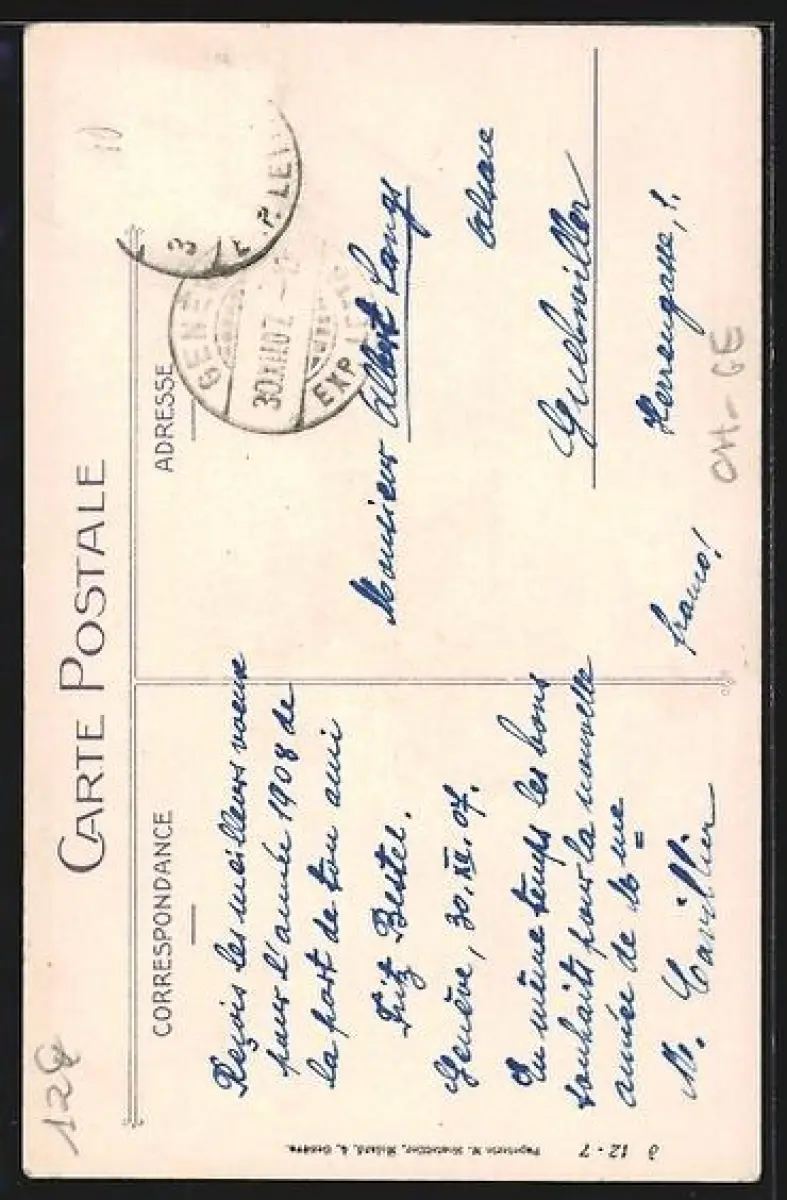 CARTE POSTALE
CORRESPONDANCE
Reçois les meilleurs voeux
pour l'année 1908 de
la part de ton ami
Fritz Bestel.
Genève, 30.XII.07.
En même temps les bons
souhaits pour la nouvelle
année de Mme
M. Cavillier
ADRESSE
GENÈ
30.XII.07.-
EXP. LE
3
P. LE
10
Monsieur Albert Lang
Alsace
Guebwiller
Herrengasse, 1.
franco!
CH-GE
12
Papeterie
Molard, 4, Genève.
12-7